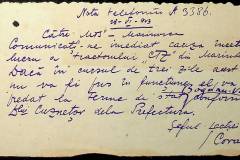 Notă telefonică № 3386.
28-VI-943
Către "MOS" Marinovca
Comunicați-ne imediat cauza încet
lucru a tractorului "CTZ" din Marinov
Dacă în cursul de trei zile acest
nu va fi pus în funcțiune el va
predat la ferme de stat conform
Dlui Cuznețov dela Prefectura.
Șeful